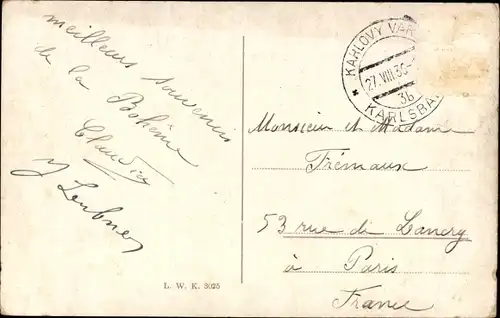 meilleurs souvenirs
de la Bohême
Claudia
Leubner
L. W. K. 3025
KARLOVY VAR
27.VIII.30
3b
KARLSBA
Monsieur et Madame
Trémaux
53 rue de Lancry
à Paris
France